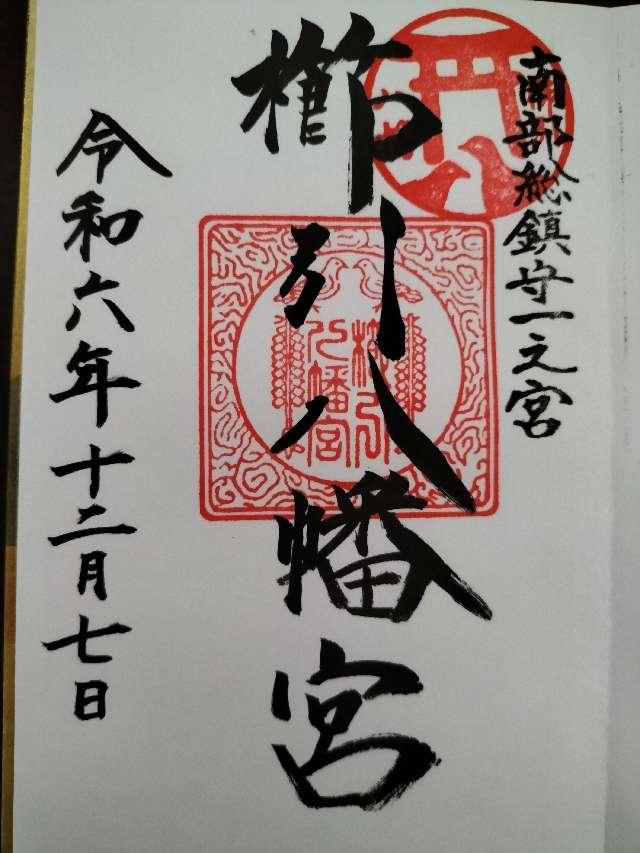 南部総鎮守一之宮
櫛引八幡宮
櫛引
八幡宮
令和六年十二月七日